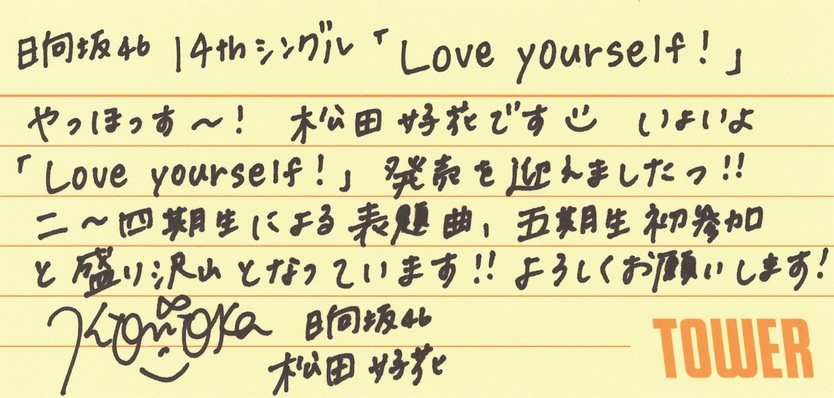 日向坂46 14thシングル「Love yourself!」
やっほっす〜! 松田好花です いよいよ
「Love yourself!」発売を迎えましたっ!!
二〜四期生による表題曲、五期生初参加
と盛り沢山となっています!! よろしくお願いします!
Konoka 日向坂46
松田好花
TOWER